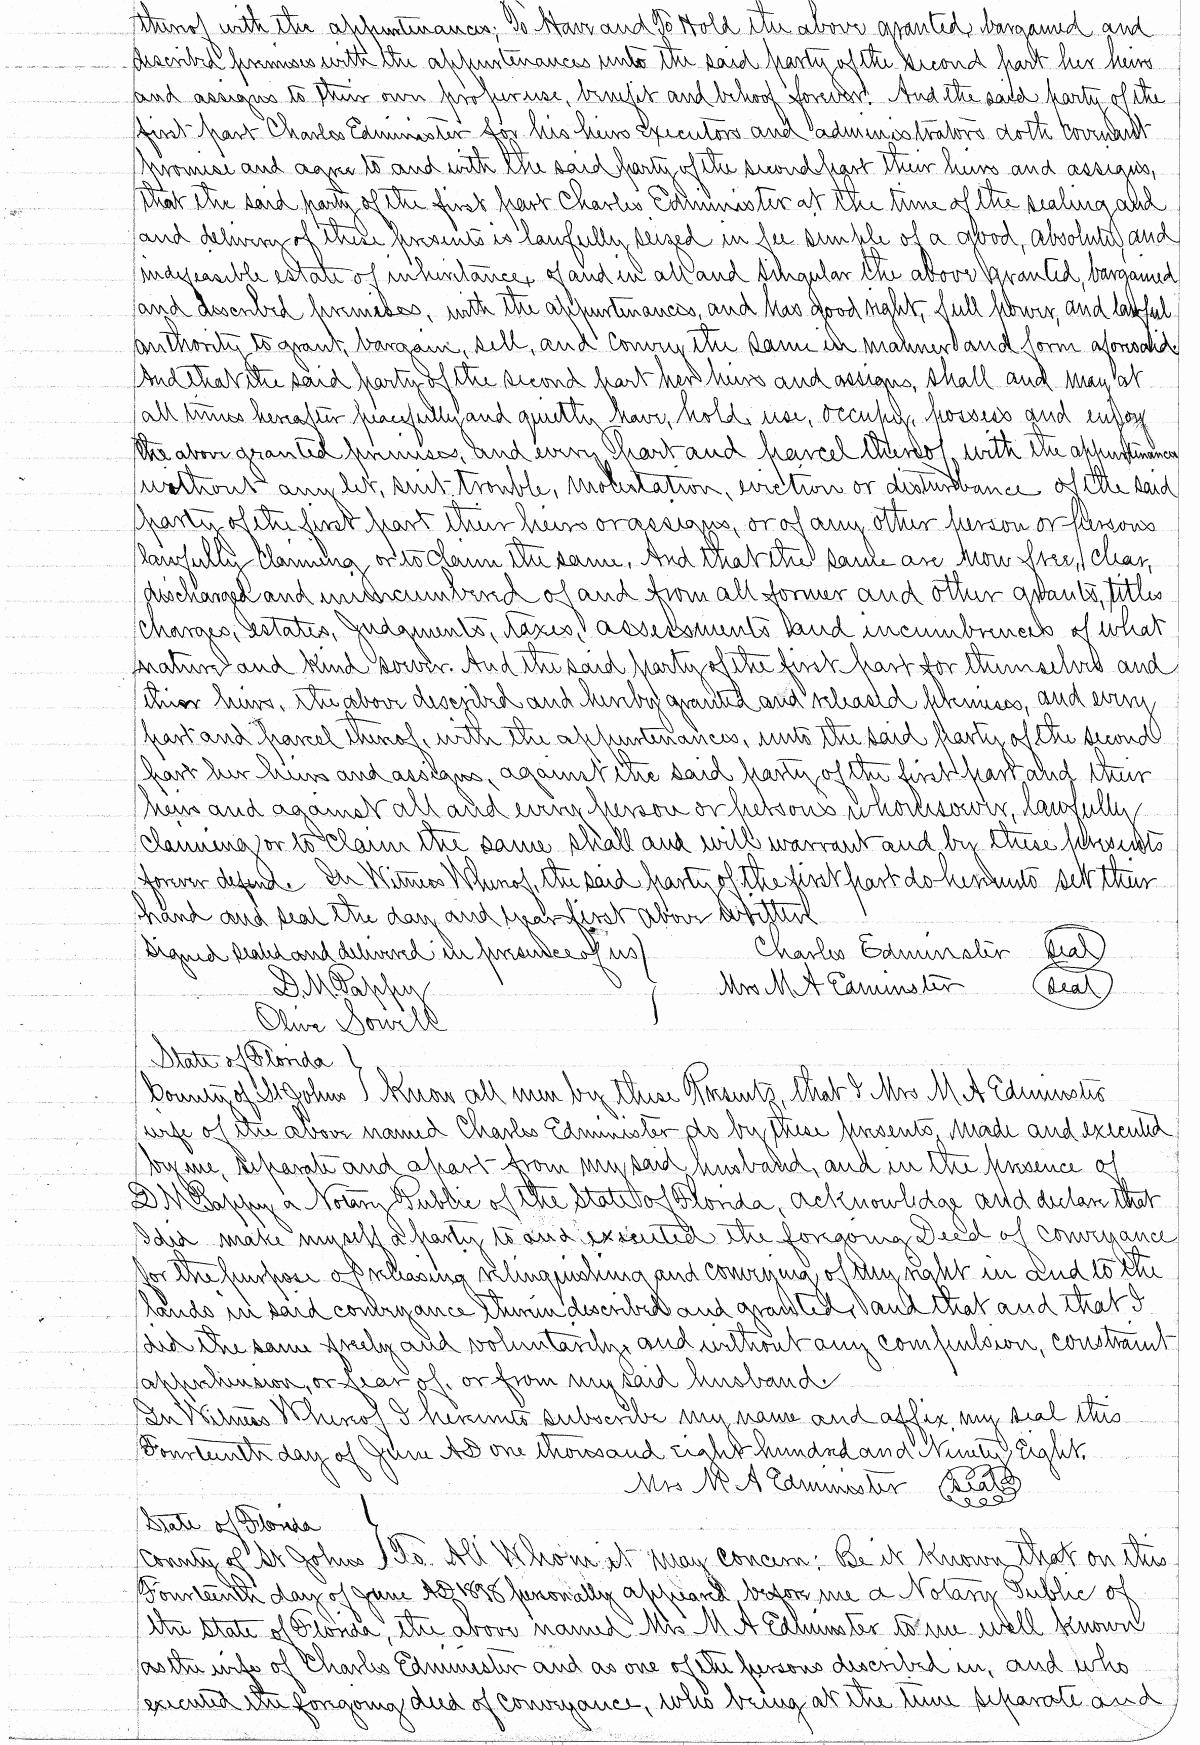 thereof with the appurtenances; To Have and To Hold the above granted, bargained and
described premises with the appurtenances unto the said party of the second part her heirs
and assigns to their own proper use, benefit and behoof forever. And the said party of the
first part Charles Edminister for his heirs executors and administrators doth covenant
promise and agree to and with the said party of the second part their heirs and assigns,
that the said party of the first part Charles Edminister at the time of the sealing and
and delivery of these presents is lawfully seized in fee simple of a good, absolute, and
indefeasible estate of inheritance, of and in all and singular the above granted, bargained
and described premises, with the appurtenances, and has good right, full power, and lawful
authority to grant, bargain, sell, and convey the same in manner and form aforesaid.
And that the said party of the second part her heirs and assigns, shall and may at
all times hereafter peacefully and quietly have, hold, use, occupy, possess and enjoy
the above granted premises, and every part and parcel thereof, with the appurtenances
without any let, suit trouble, molestation, eviction or disturbance of the said
party of the first part their heirs or assigns, or of any other person or persons
lawfully claiming or to claim the same. And that the same are now free, clear,
discharged and unincumbered of and from all former and other grants, titles
charges, estates, judgments, taxes, assessments and incumbrences of what
nature and kind soever. And the said party of the first part for themselves and
thier heirs, the above described and hereby granted and released premises, and every
part and parcel thereof, with the appurtenances, unto the said party of the second
part her heirs and assigns, against the said party of the first part and their
heirs and against all and every person or persons whomsoever, lawfully
claiming or to claim the same shall and will warrant and by these presents
forever defend. In Witness Whereof, the said party of the first part do hereunto set their
hand and seal the day and year first above written
Signed sealed and delivered in presence of us } Charles Edminster seal
D. M. Pappy } Mrs M A Edminster seal
Olive Sowell
State of Florida }
County of St Johns } Know all men by these Presents, that I Mrs M A Edminster
wife of the above named Charles Edminister do by these presents, made and executed
by me, separate and apart from my said husband, and in the presence of
D M Pappy a Notary Public of the State of Florida, acknowledge and declare that
I did make myself a party to and executed the foregoing Deed of conveyance
for the purpose of releasing relinquishing and conveying of my right in and to the
lands in said conveyance therein described and granted, and that and that I
did the same freely and voluntarily, and without any compulsion, constraint
apprehension, or fear of, or from my said husband.
In Witness Whereof I hereunto subscribe my name and affix my seal this
Fourteenth day of June AD one thousand eight hundred and Ninety Eight.
Mrs M A Edminister seal
State of Florida
County of St Johns } To All Whom it may concern: Be it known, that on this
Fourteenth day of June AD 1898 personally appeared before me a Notary Public of
the State of Florida, the above named Mrs M A Edminster to me well known
as the wife of Charles Edminester and as one of the persons described in, and who
executed the foregoing deed of conveyance, who being at the time separate and